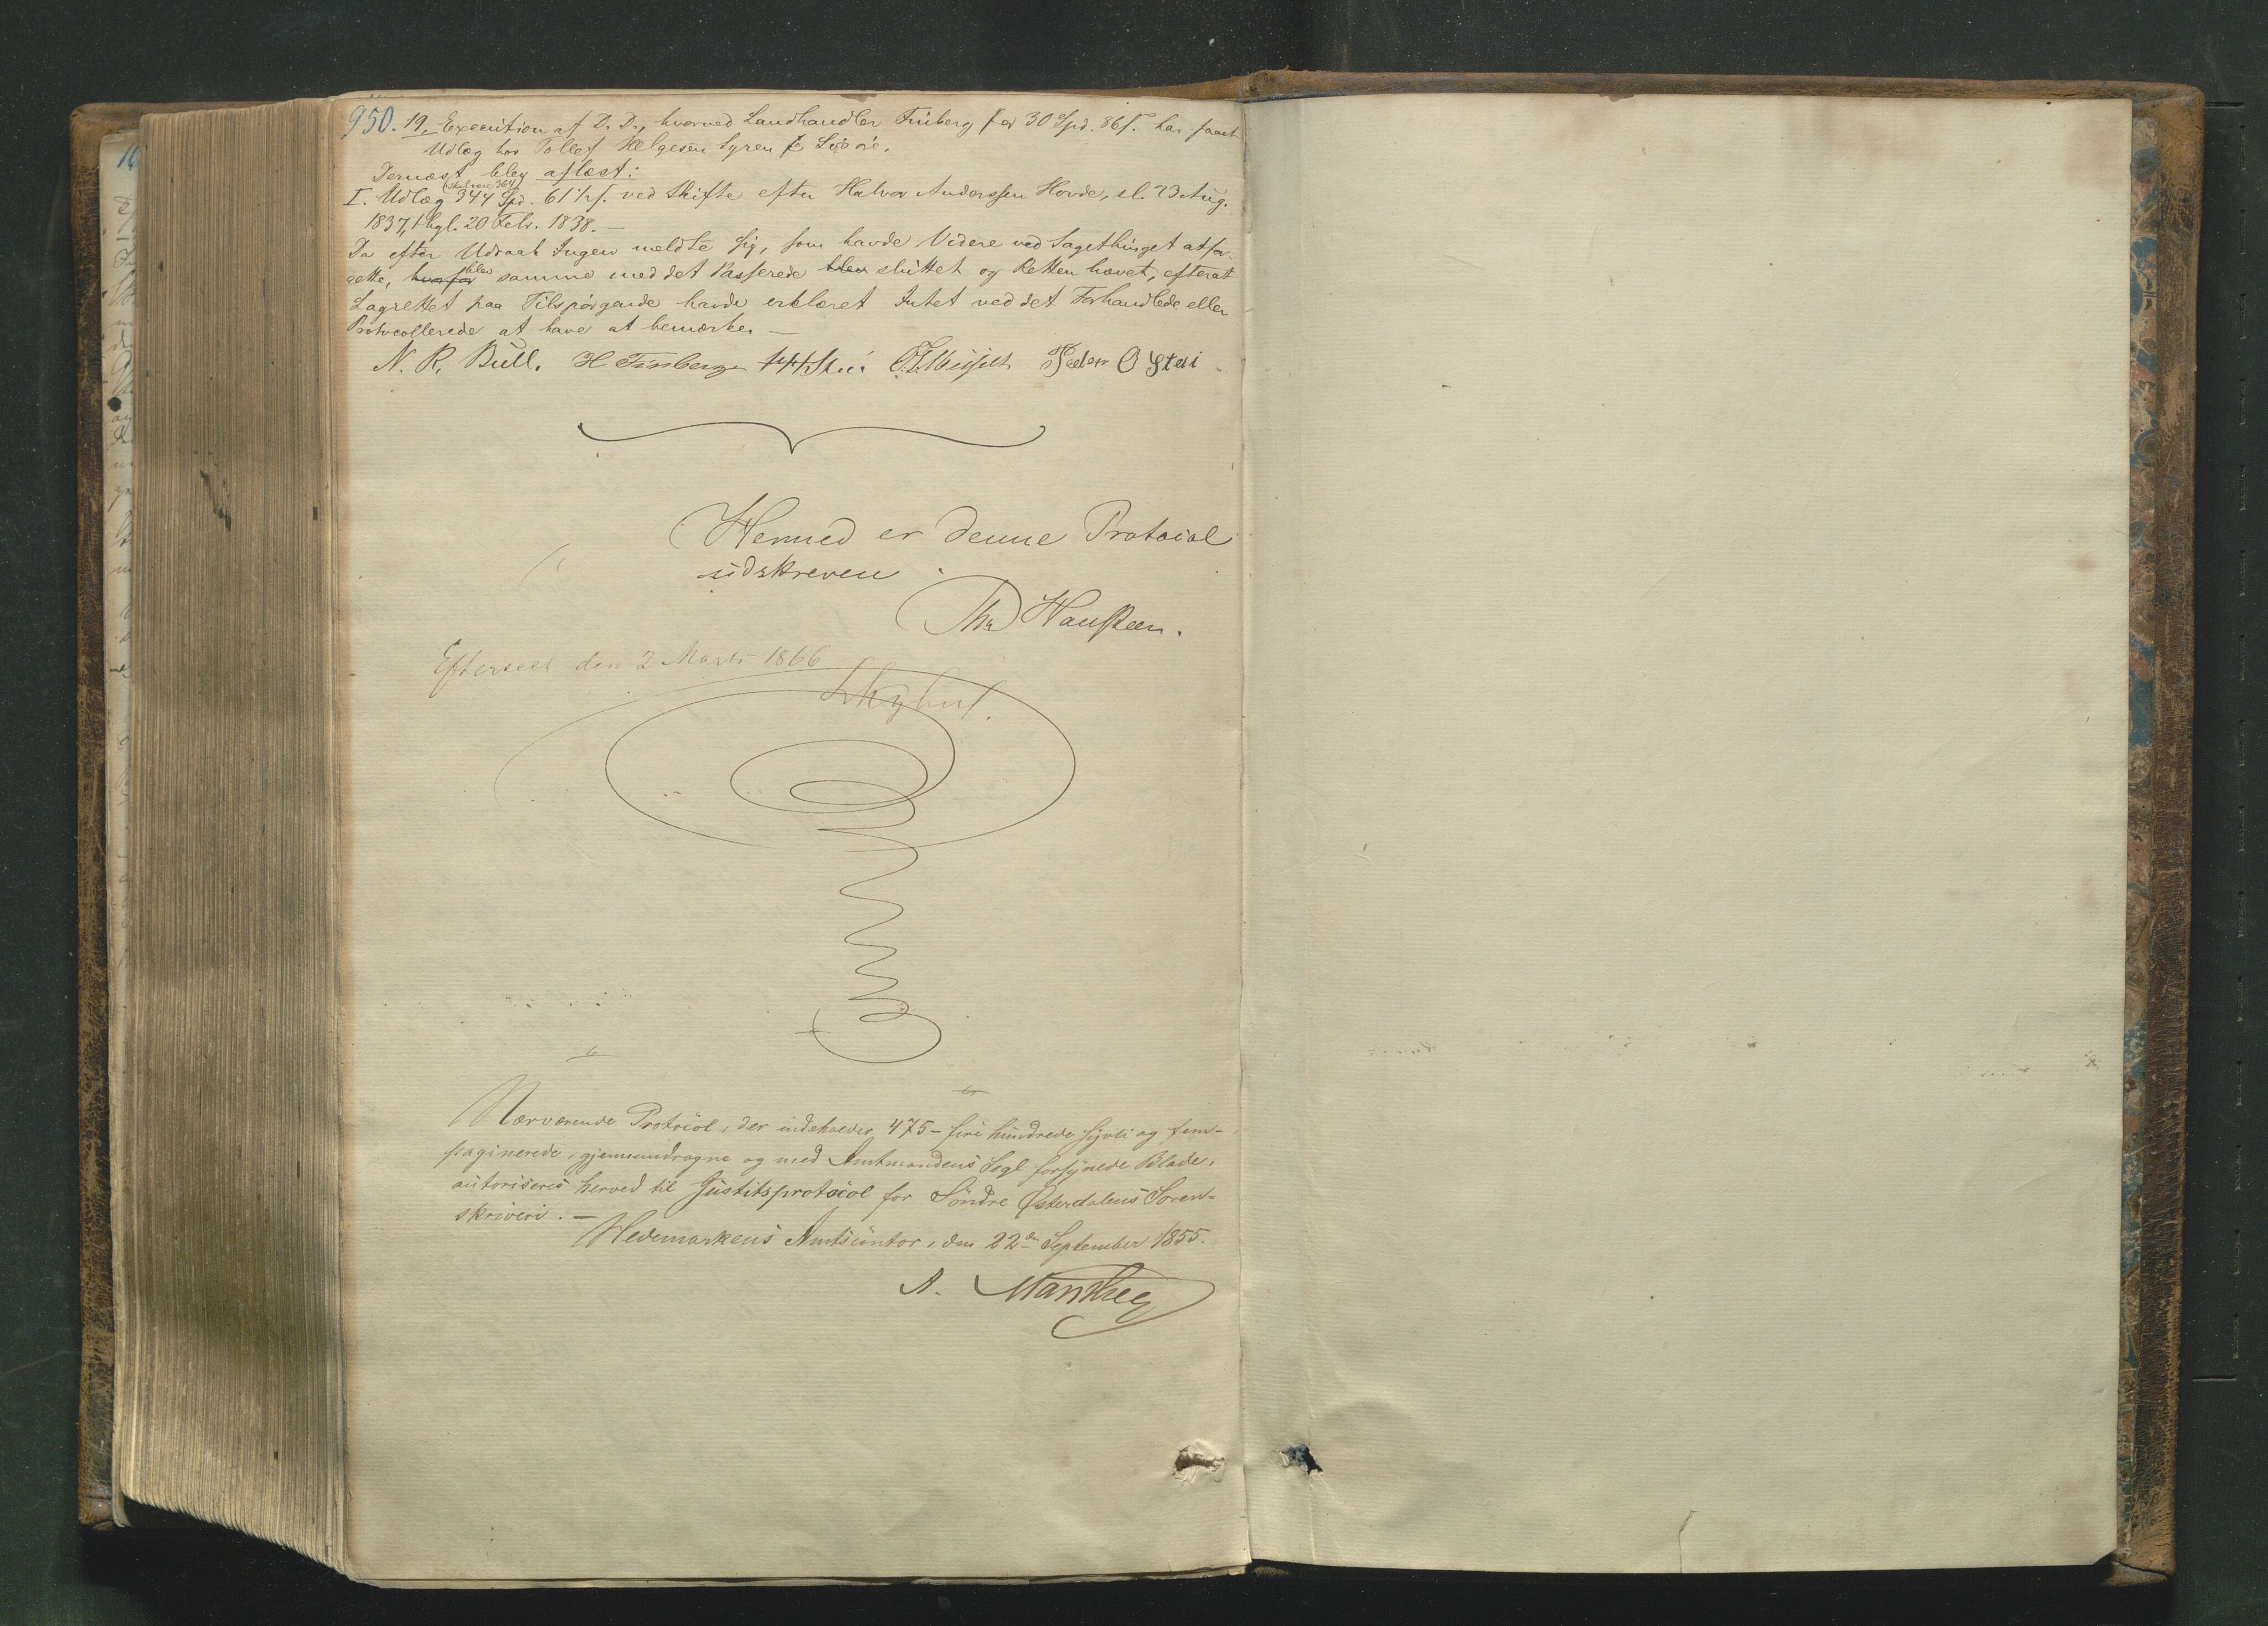 950. 19. Execution af D. D., hvorved Landhandler Finberg for 30 Spd. 86 s. har faaet
Udlæg hos Tollef Helgesen Lyren
Dernæst blev aflæst:
(skal være 364)
I. Udlæg 344 Spd. 61 1/2 s. ved Skifte efter Halvor Anderssen Hovde, sl. 23 Aug.
1837, thgl. 20 Febr. 1838. —
Da efter Udraab Ingen meldte sig, som havde Videre ved Sagethinget at for-
rette, hvorfor blev samme med det Passerede blev sluttet og Retten hævet, efterat
Lagrettet paa Tilspørgende havde erklæret Intet ved det Forhandlede eller
Protocollerede at have at bemærke. —
N. R. Bull. H Finberg Peder O Stai
Hermed er denne Protocol
udskreven.
Th Hansteen.
Efterseet den 2 Marts 1866
Nærværende Protocol, der indeholder 475 – fire hundrede syvti og fem –
paginerede, gjennemdragne og med Amtmandens Segl forsynede Blade,
autoriseres herved til Justitsprotocol for Söndre Østerdalens Soren-
skriveri. —
Hedemarkens Amtscontor, den 22de September 1855.
A. Manthey